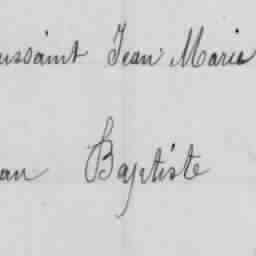 ussaint Jean Marie
an Baptiste